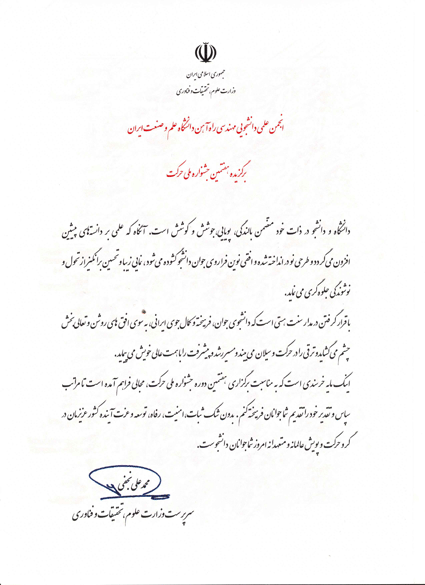 جمهوری اسلامی ایران
وزارت علوم، تحقیقات و فناوری
انجمن علمی دانشجویی مهندسی راه آهن دانشگاه علم و صنعت ایران
برگزیده هفتمین جشنواره ملی حرکت
دانشگاه و دانشجو در ذات خود متضمن بالندگی، پویایی، جوشش و کوشش است. آنگاه که علمی بر دانسته‌های پیشین
افزون می گردد و طرحی نو در انداخته شده و افقی نوین فراروی جوان دانشجو گشوده می شود، نمایی زیبا و تحسین برانگیز از تحول و
نوشوندگی جلوه گری می نماید.
با قرار گرفتن در مدار سنت هستی است که دانشجوی جوان، فرهیخته و کمال جوی ایرانی، به سوی افق های روشن و تعالی بخش
چشم می گشاید و ترقی را در حرکت و سیلان می بیند و مسیر رشد و پیشرفت را با همت عالی خویش می پیماید.
اینک مایه خرسندی است که به مناسبت برگزاری هفتمین دوره جشنواره ملی حرکت، مجالی فراهم آمده است تا مراتب
سپاس و تقدیر خود را تقدیم شما جوانان فرهیخته کنم. بدون شک ثبات، امنیت، رفاه، توسعه و عزت آینده کشور عزیزمان در
گرو حرکت و پویش عالمانه و متعهدانه امروز شما جوانان دانشجو ست.
محمد علی نجفی
سرپرست وزارت علوم، تحقیقات و فناوری